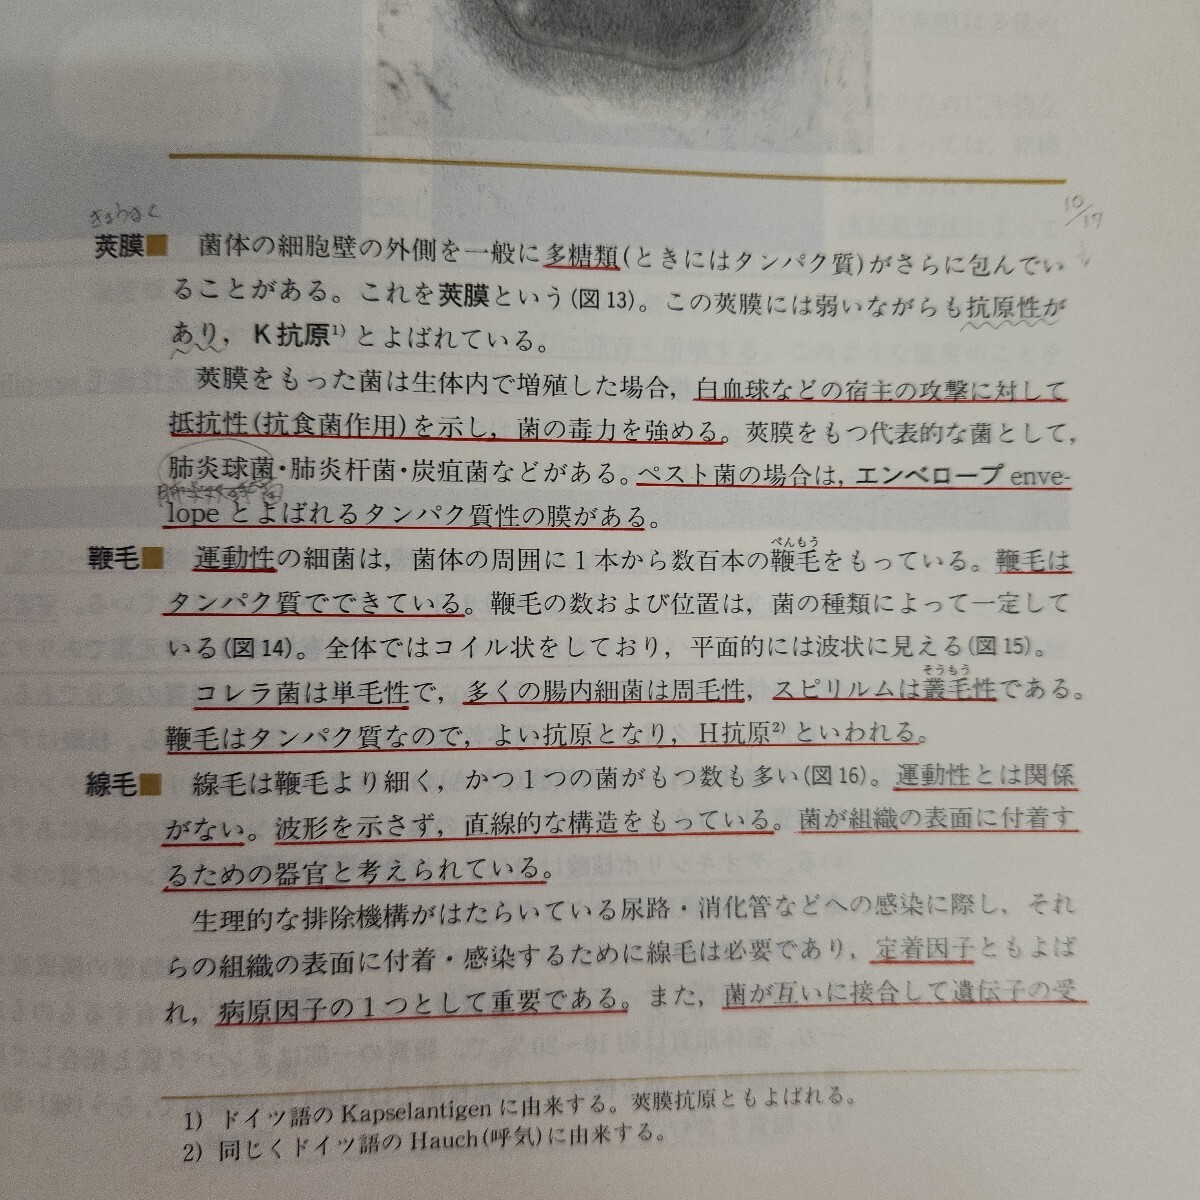 きょうまく
10/17
莢膜■ 菌体の細胞壁の外側を一般に多糖類(ときにはタンパク質)がさらに包んでい
ることがある。これを莢膜という(図13)。この莢膜には弱いながらも抗原性が
あり，K抗原1)とよばれている。
莢膜をもった菌は生体内で増殖した場合，白血球などの宿主の攻撃に対して
抵抗性(抗食菌作用)を示し，菌の毒力を強める。莢膜をもつ代表的な菌として，
肺炎球菌・肺炎杆菌・炭疽菌などがある。ペスト菌の場合は，エンベロープ enve-
lope とよばれるタンパク質性の膜がある。
べんもう
鞭毛■ 運動性の細菌は，菌体の周囲に1本から数百本の鞭毛をもっている。鞭毛は
タンパク質でできている。鞭毛の数および位置は，菌の種類によって一定して
いる(図14)。全体ではコイル状をしており，平面的には波状に見える(図15)。
そうもう
コレラ菌は単毛性で，多くの腸内細菌は周毛性，スピリルムは叢毛性である。
鞭毛はタンパク質なので，よい抗原となり，H抗原2)といわれる。
線毛■ 線毛は鞭毛より細く，かつ1つの菌がもつ数も多い(図16)。運動性とは関係
がない。波形を示さず，直線的な構造をもっている。菌が組織の表面に付着す
るための器官と考えられている。
生理的な排除機構がはたらいている尿路・消化管などへの感染に際し，それ
らの組織の表面に付着・感染するために線毛は必要であり，定着因子ともよば
れ，病原因子の1つとして重要である。また，菌が互いに接合して遺伝子の受
1) ドイツ語の Kapselantigen に由来する。莢膜抗原ともよばれる。
2) 同じくドイツ語の Hauch(呼気)に由来する。